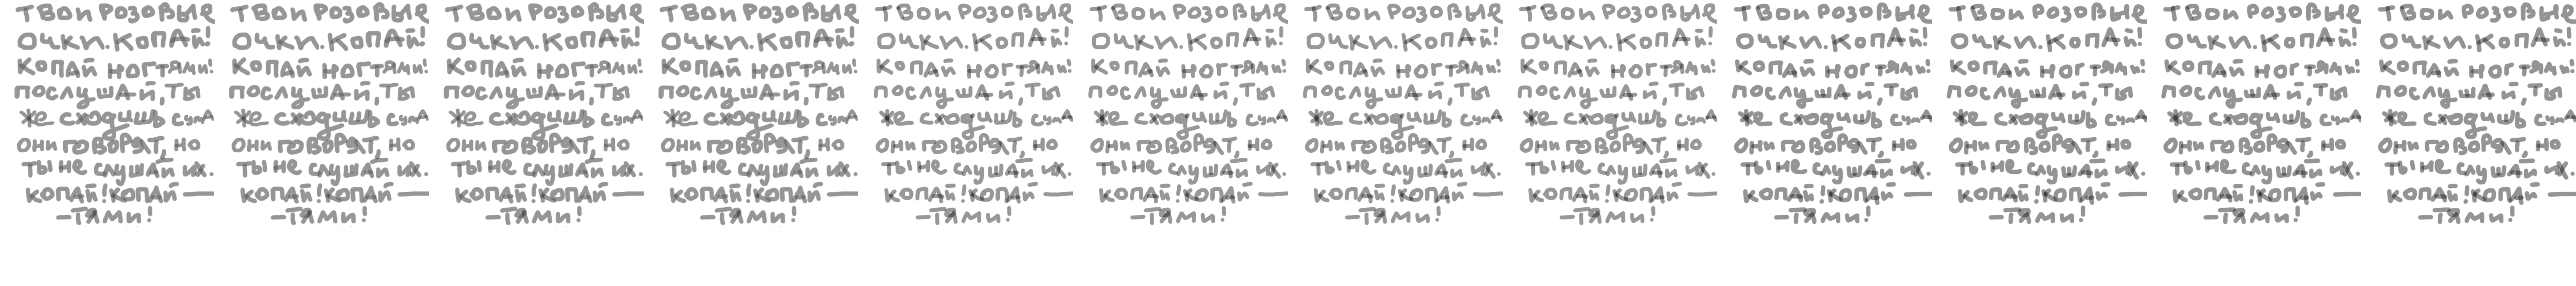 Твои розовые
очки. Копай!
Копай ногтями!
послушай, ты
же сходишь сума
Они говорят, но
ты не слушай их.
копай! копай —
-тями!
Твои розовые
очки. Копай!
Копай ногтями!
послушай, ты
же сходишь сума
Они говорят, но
ты не слушай их.
копай! копай —
-тями!
Твои розовые
очки. Копай!
Копай ногтями!
послушай, ты
же сходишь сума
Они говорят, но
ты не слушай их.
копай! копай —
-тями!
Твои розовые
очки. Копай!
Копай ногтями!
послушай, ты
же сходишь сума
Они говорят, но
ты не слушай их.
копай! копай —
-тями!
Твои розовые
очки. Копай!
Копай ногтями!
послушай, ты
же сходишь сума
Они говорят, но
ты не слушай их.
копай! копай —
-тями!
Твои розовые
очки. Копай!
Копай ногтями!
послушай, ты
же сходишь сума
Они говорят, но
ты не слушай их.
копай! копай —
-тями!
Твои розовые
очки. Копай!
Копай ногтями!
послушай, ты
же сходишь сума
Они говорят, но
ты не слушай их.
копай! копай —
-тями!
Твои розовые
очки. Копай!
Копай ногтями!
послушай, ты
же сходишь сума
Они говорят, но
ты не слушай их.
копай! копай —
-тями!
Твои розовые
очки. Копай!
Копай ногтями!
послушай, ты
же сходишь сума
Они говорят, но
ты не слушай их.
копай! копай —
-тями!
Твои розовые
очки. Копай!
Копай ногтями!
послушай, ты
же сходишь сума
Они говорят, но
ты не слушай их.
копай! копай —
-тями!
Твои розовые
очки. Копай!
Копай ногтями!
послушай, ты
же сходишь сума
Они говорят, но
ты не слушай их.
копай! копай —
-тями!
Твои розовые
очки. Копай!
Копай ногтями!
послушай, ты
же сходишь сума
Они говорят, но
ты не слушай их.
копай! копай —
-тями!